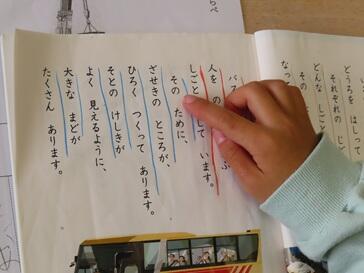 どうろを はしって
それぞれの
どんな しごと
その
なって
バ
人を の ぶ
しごと て います。
その ために、
ざせきの ところが、
ひろく つくって あります。
そとの けしきが
よく 見えるように、
大きな まどが
たくさん あります。
らべ